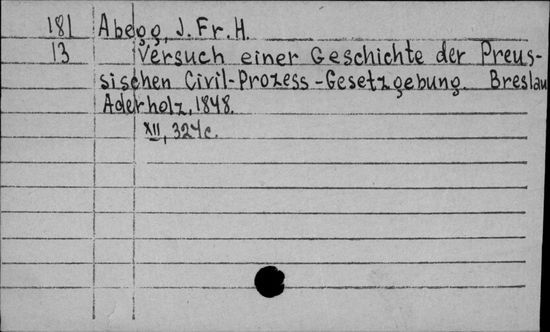 181 Abegg, J. Fr. H.
13 Versuch einer Geschichte der Preus-
sischen Civil-Prozess-Gesetzgebung. Breslau
Aderholz, 1848.
XII, 324 с.